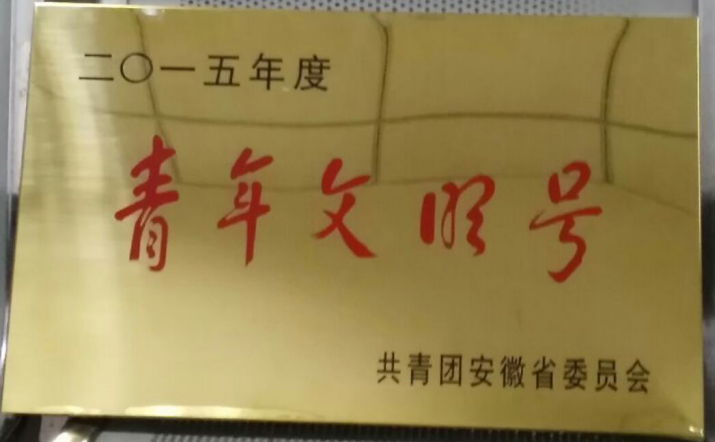 二〇一五年度
青年文明号
共青团安徽省委员会